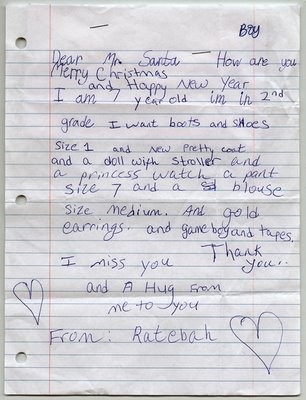 Boy
Dear Mr. Santa How are you
Merry Christmas
and Happy New Year
I am 7 year old im in 2nd
grade I want boots and shoes
size 1 and new pretty coat
and a doll with stroller and
a princess watch a pant
size 7 and a blouse
size medium. And gold
earrings. and game boy and tapes.
Thank
you..
I miss you
and A Hug From
me to you
From: Ratebah